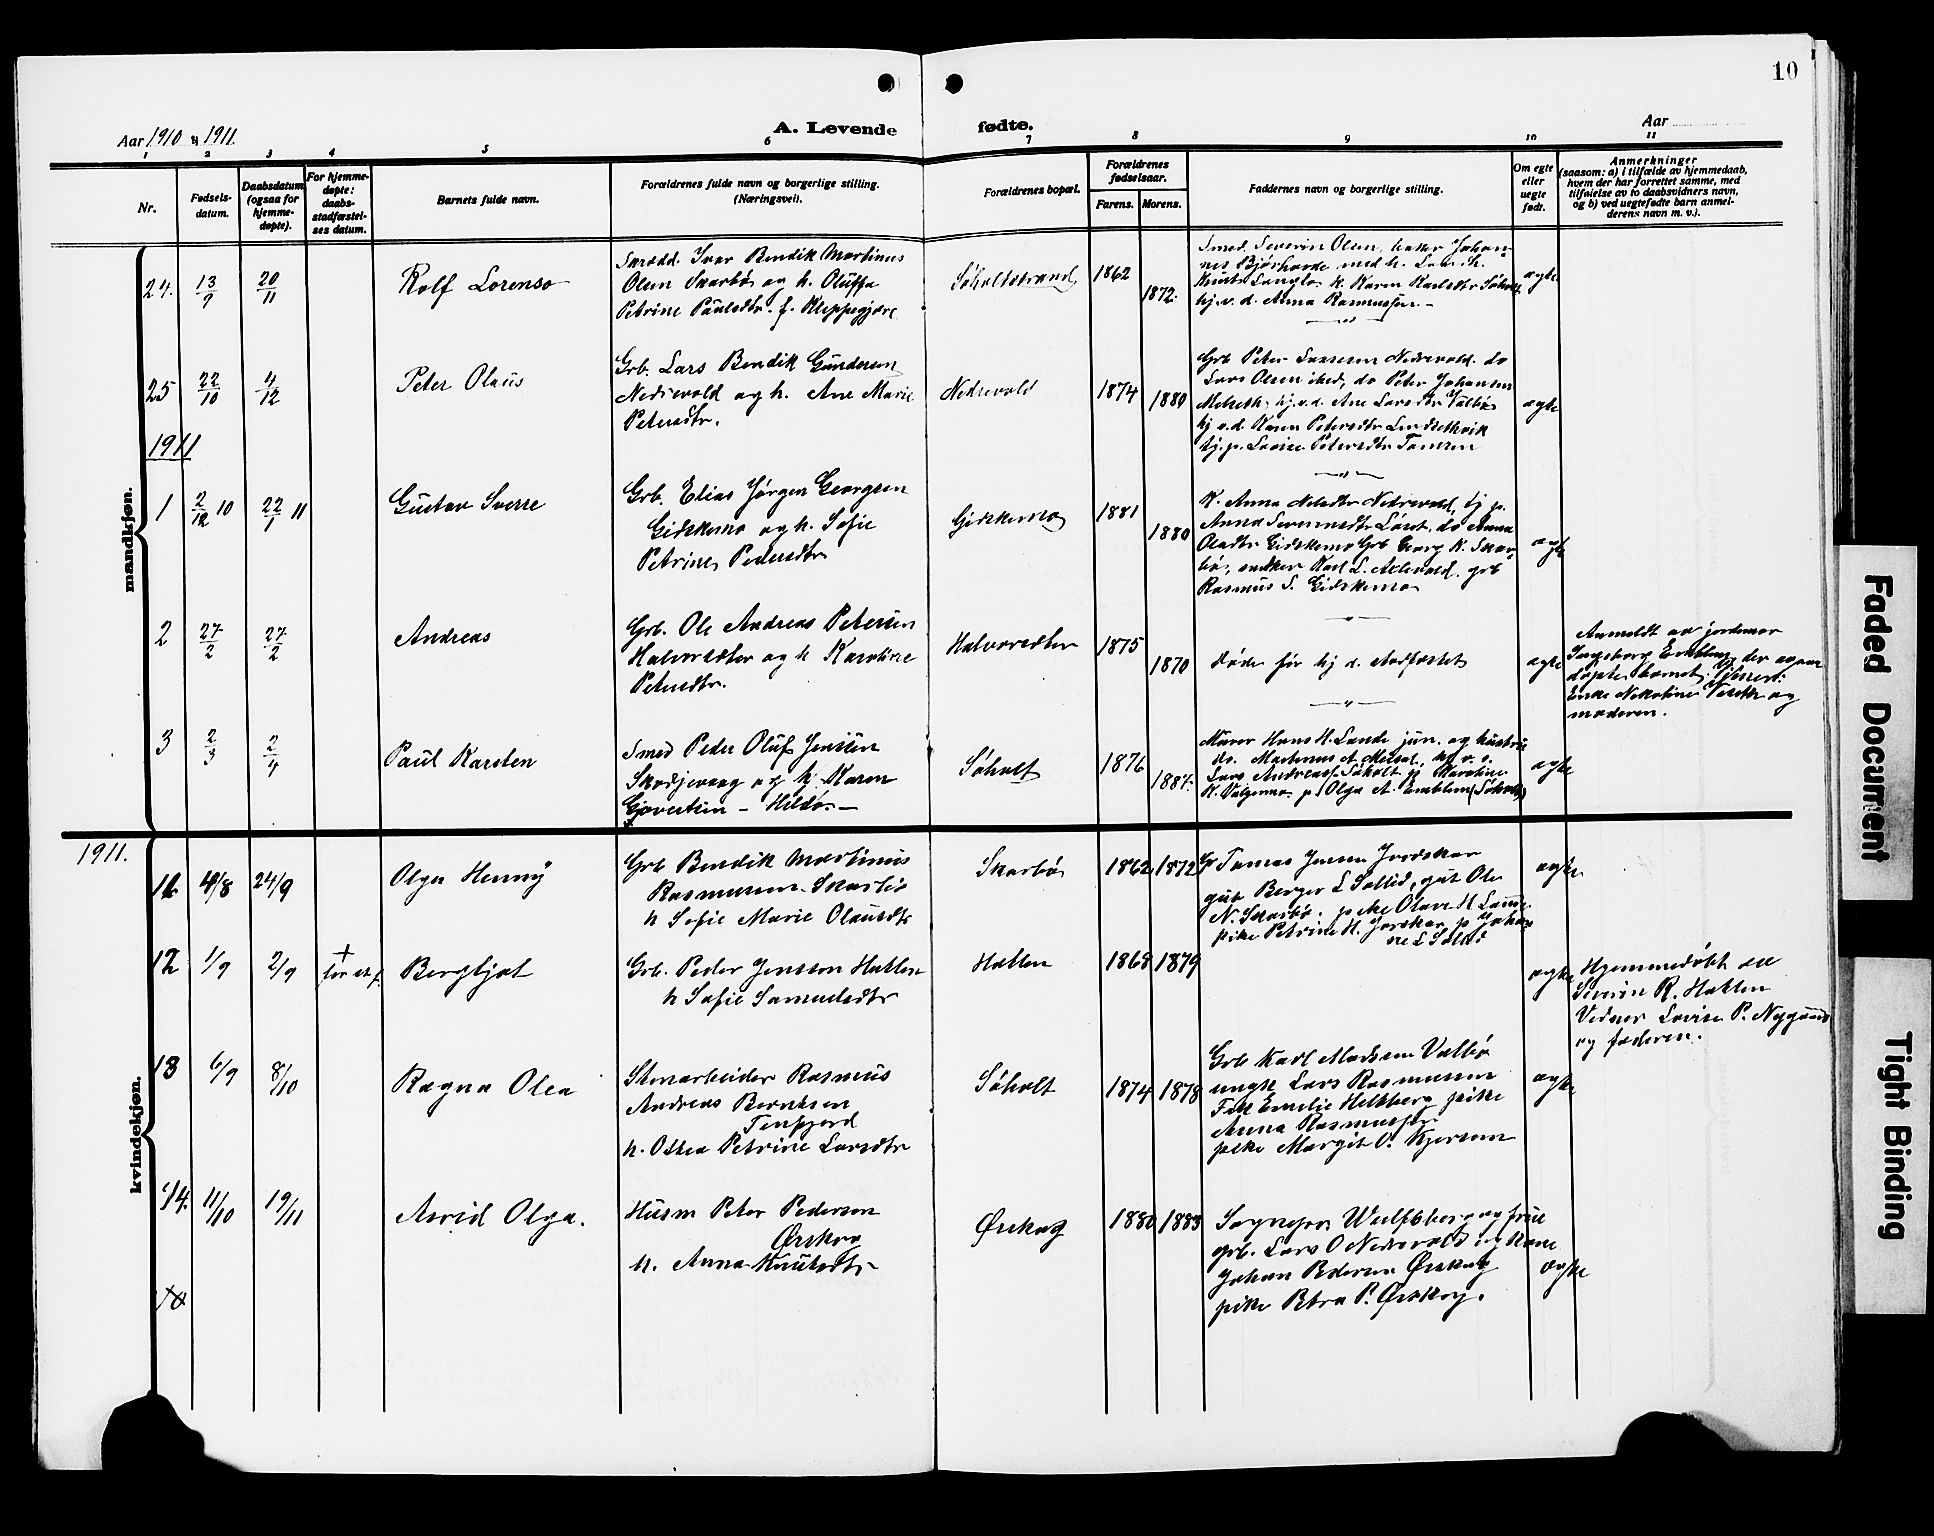 10
Aar 1910 & 1911.
A. Levende fødte.
Aar
1 2 3 4 5 6 7 8 9 10 11
Nr.
Fødsels-
datum.
Daabsdatum
(ogsaa for
hjemme-
døpte).
For hjemme-
døpte:
daabs-
stadfæstel-
ses datum.
Barnets fulde navn.
Forældrenes fulde navn og borgerlige stilling.
(Næringsvei).
Forældrenes bopæl.
Forældrenes
fødselsaar.
Farens. Morens.
Faddernes navn og borgerlige stilling.
Om egte
eller
uegte
født.
Anmerkninger
(saasom: a) i tilfælde av hjemmedaab,
hvem der har forrettet samme, med
tilføielse av to daabsvidners navn,
og b) ved uegtefødte barn anmel-
derens navn m. v.).
mandkjøn.
24. 13/9 20/11
Rolf Lorenso
Ivar Bendik Martinus
Olsen Skarbø og h. Oluffa
Petrine Paulsdtr. f. Kleppegjære
Søholtstrand
1862
1872.
Smed. Severin Olsen,
Knut k. Karen Karlsdtr Søholt
hj. v. d. Anna Rasmussen -
ægte
25 22/10 4/12
Peter Olaus
Grb. Lars Bendik Gundersen
Nedrevold og h. Ane Marie
Petersdtr.
Nedrevold
1874
1880
Grb Peter Larsen Nedrevold. do
Lars Olsen ibid, do Peter Johansen
hj. v. d. Ane Larsdtr Valbø
hj v. d. Karen Petersdtr
hj. p. Lovise Petersdtr
ægte
1911
1 2/12 10 22/1 11
Gustav Sverre
Grb. Elias Jørgen Georgsen
Gidskemo og h. Sofie
Petrine Pedersdtr
Gidskemo
1881
1880
K. Anna Nedrevold, hj p.
Anna do Anna
Olsdtr Gidskemo Grb Georg K. Skar-
bø, Karl L. grb
Rasmus S. Gidskemo
ægte
2 27/2 27/2
Andreas
Grb. Ole Andreas Petersen
Halvorsdter og h Karoline
Petersdtr.
Halvorsdter
1875
1870
døde før hj d. stadfæstet
ægte
Anmeldt av jordemor
Ingeborg Emblem, der ogsaa
døpte barnet.
Enke Nikoline og
moderen.
3 2/3 2/4
Paul Karsten
Smed Peder Oluf Jensen
Skodjevaag og h. Karen
Govertsen - Hildø. -
Søholt
1876
1887.
Murer Hans H. Lande jun. og hustru
do. Martinus A. hj v. s.
Lars Andreas Søholt p Karoline
K. p Olga A. Emblem (Søholt)
ægte
1911.
kvindekjøn.
11 4/8 24/9
Olga Henny
Grb Bendik Martinus
Rasmussen Skarbø
h Sofie Marie Olausdtr
Skarbø
1862 1872
Gr Tomas Jensen
gut Berger L Sollid, gut Ole
N. Skarbø. pike Olave H Lande
pike Petrine H. p Johan-
ne L Solid
ægte
12 1/9 2/9
+
før st f
Bergljot
Grb. Peder Jensson Hatlen
h Sofie Samuelsdtr
Hatlen
1868 1879
ægte
Hjemmedøbt av
Severin R. Hatlen
Vidner Lovise P. Nygaard
og faderen.
13 6/9 8/10
Ragna Olea
Stenarbeider Rasmus
Andreas Berntsen
Tenfjord
h. Othea Petrine Larsdtr
Søholt
1874 1878
Grb Karl Madsen Valbø
ungk Lars Rasmussen
Frk Emilie Heltberg pike
Anna Rasmusdtr
pike Margit O. Kjersem
ægte
14. 11/10 19/11
Astrid Olga.
Husm Peter Pedersen
Ørskog
h. Anna Knutsdtr
Ørskog
1880 1883
Sogneprs Wulfsberg og frue
grb. Lars O Nedrevold og kone
Johan Pedersen Ørskog
pike Petra P. Ørskog.
ægte
Faded Document
Tight Binding